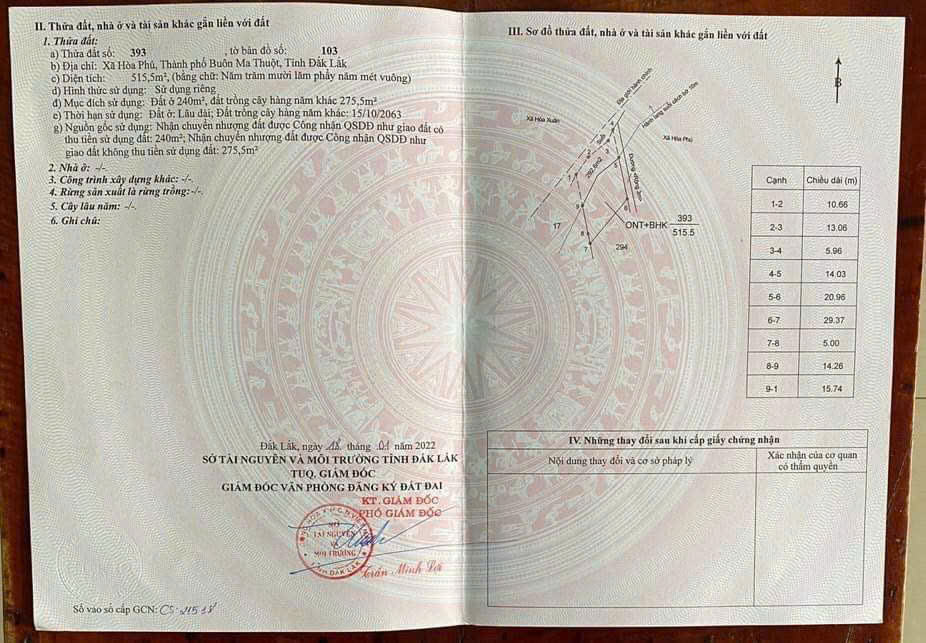 II. Thửa đất, nhà ở và tài sản khác gắn liền với đất
1. Thửa đất:
a) Thửa đất số: 393 , tờ bản đồ số: 103
b) Địa chỉ: Xã Hòa Phú, Thành phố Buôn Ma Thuột, Tỉnh Đắk Lắk
c) Diện tích: 515,5m², (bằng chữ: Năm trăm mười lăm phẩy năm mét vuông)
d) Hình thức sử dụng: Sử dụng riêng
đ) Mục đích sử dụng: Đất ở 240m², đất trồng cây hàng năm khác 275,5m²
e) Thời hạn sử dụng: Đất ở: Lâu dài; Đất trồng cây hàng năm khác: 15/10/2063
g) Nguồn gốc sử dụng: Nhận chuyển nhượng đất được Công nhận QSDĐ như giao đất có
thu tiền sử dụng đất: 240m²; Nhận chuyển nhượng đất được Công nhận QSDĐ như
giao đất không thu tiền sử dụng đất: 275,5m²
2. Nhà ở: -/-.
3. Công trình xây dựng khác: -/-.
4. Rừng sản xuất là rừng trồng: -/-.
5. Cây lâu năm: -/-.
6. Ghi chú:
Đắk Lắk, ngày 18 tháng 01 năm 2022
SỞ TÀI NGUYÊN VÀ MÔI TRƯỜNG TỈNH ĐẮK LẮK
TUQ. GIÁM ĐỐC
GIÁM ĐỐC VĂN PHÒNG ĐĂNG KÝ ĐẤT ĐAI
KT. GIÁM ĐỐC
PHÓ GIÁM ĐỐC
SỞ
TÀI NGUYÊN
VÀ
MÔI TRƯỜNG
TỈNH ĐẮK LẮK
Trần Minh Lợi
Số vào sổ cấp GCN: CS
III. Sơ đồ thửa đất, nhà ở và tài sản khác gắn liền với đất
B
Địa giới hành chính
Hành lang suối cách bờ 10m
Xã Hòa Xuân
Xã Hòa Phú
Suối
Đường
17
6
7
8
9
294
ONT+BHK 393
515.5
Cạnh Chiều dài (m)
1-2 10.66
2-3 13.06
3-4 5.96
4-5 14.03
5-6 20.96
6-7 29.37
7-8 5.00
8-9 14.26
9-1 15.74
IV. Những thay đổi sau khi cấp giấy chứng nhận
Nội dung thay đổi và cơ sở pháp lý
Xác nhận của cơ quan
có thẩm quyền